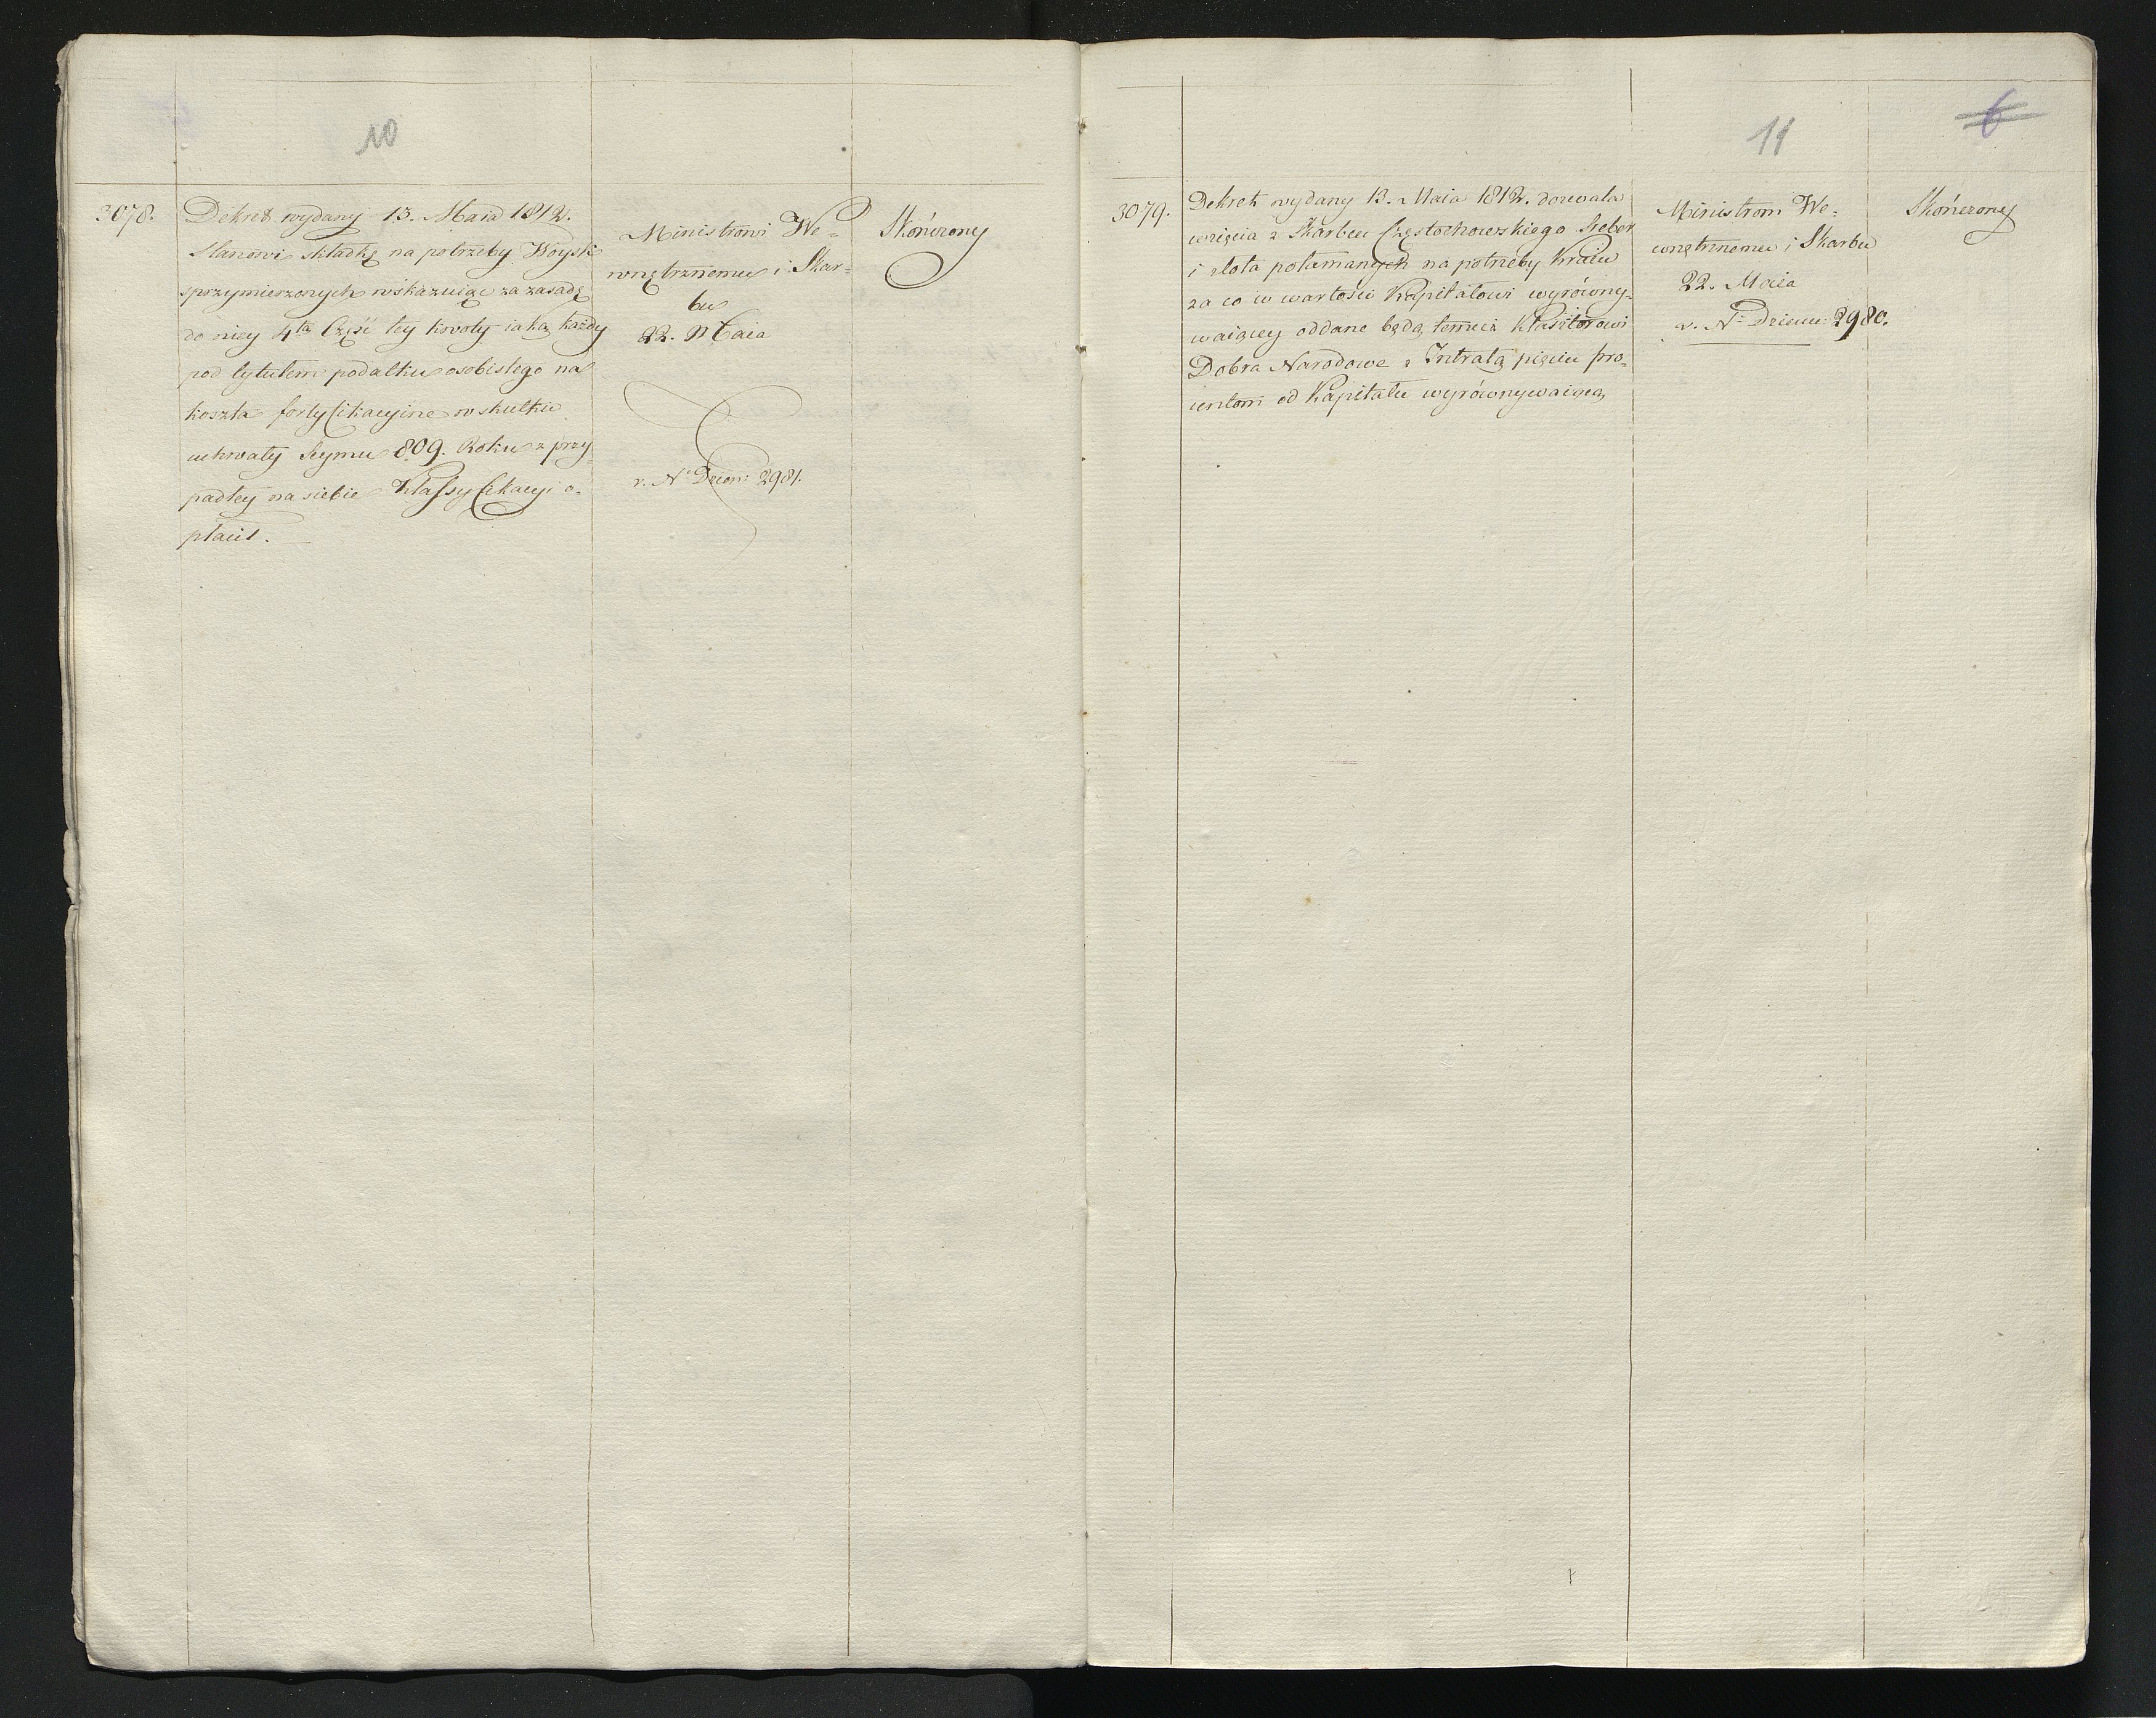 10
3078.
Dekret wydany 13. Maia 1812.
Stanowi składkę na potrzeby Woysk
sprzymierzonych wskazuiąc za zasadę
do niey 4ta Część tey kwoty iaką każdy
pod tytułem podatku osobistego na
koszta fortyfikacyine w skutku
uchwały Seymu 809. Roku z przy-
padłey na siebie Klassyfikacyi o-
płacił.
Ministrowi We-
wnętrznemu i Skar-
bu
22. Maia
v. No Dzien: 2981.
Skończony
11
6
3079.
Dekret wydany 13. Maia 1812. dozwala
wzięcia z Skarbcu Częstochowskiego Sreber
i złota połamanych na potrzeby Kraiu
za co w wartości Kapitałowi wyrówny-
waiącey oddane będą temuż Klasztorowi
Dobra Narodowe z Intratą pięciu pro-
centom od Kapitału wyrównywaiącą
Ministrom We-
wnętrznemu i Skarbu
22. Maia
v. No Dzienn: 2980.
Skończony